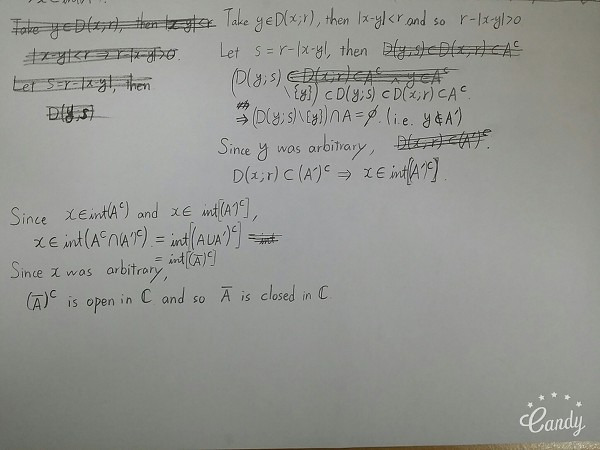 Take y∈D(x;r), then |x-y|<r
|x-y|<r ⇒ r-|x-y|>0.
Let s=r-|x-y|, then
D(y;s)
Take y∈D(x;r), then |x-y|<r and so r-|x-y|>0
Let s=r-|x-y|, then D(y;s)⊂D(x;r)⊂A^c
(D(y;s) ⊂D(x;r)⊂A^c ∧ y∈A^c
\{y}) ⊂D(y;s)⊂D(x;r)⊂A^c.
⇒ (D(y;s)\{y})∩A=∅. (i.e. y∉A')
Since y was arbitrary, D(x;r)⊂(A')^c.
D(x;r)⊂(A')^c ⇒ x∈int[(A')^c].
Since x∈int(A^c) and x∈ int[(A')^c],
x∈int(A^c∩(A')^c) = int[(A∪A')^c] = int
= int[(A̅)^c]
Since x was arbitrary,
(A̅)^c is open in ℂ and so A̅ is closed in ℂ
Candy